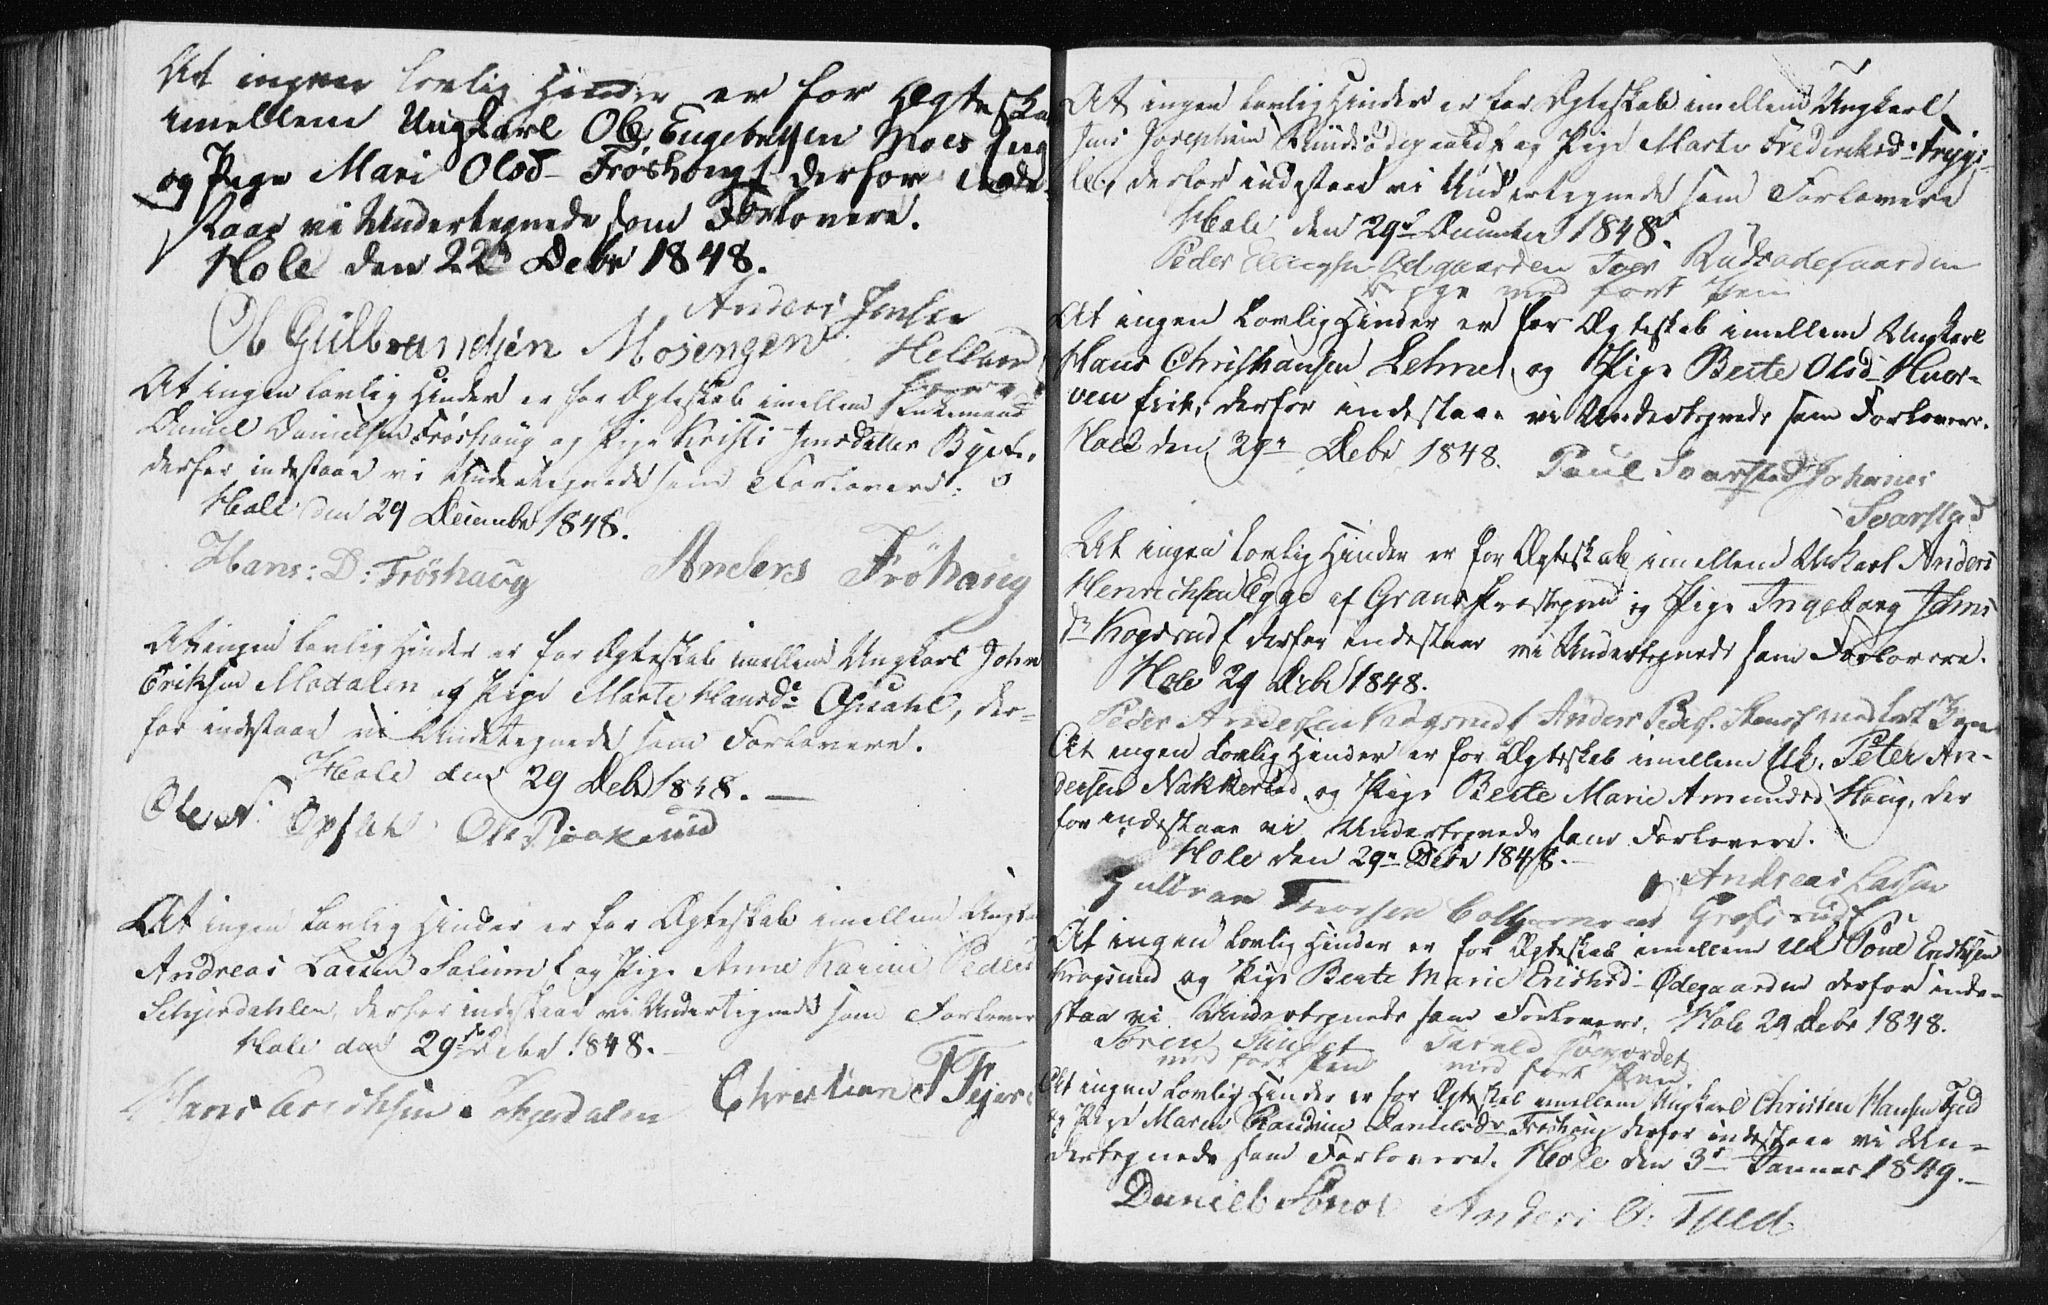 At ingen lovlig Hinder er for Ægteska
imellem Ungkarl Ole Engebretsen Moes
og Pige Mari Olsd Frøshoug derfor inde
staae vi Undertegnede som Forlovere.
Hole den 22 Debr 1848.
Anders Jensen
Ole Gulbrandsen Mosengen Helland
At ingen lovlig Hinder er for Ægteskab imellem Enkemand
Daniel Danielsen Frøshaug og Pige Kristi Jensdatter
derfor indestaae vi Undertegnede som Forlovere.
Hole den 29 Decembr 1848.
Hans: D: Frøshaug Anders Fröhaug
At ingen lovlig Hinder er for Ægteskab imellem Ungkarl John
Eriksen Modalen og Pige Marte Hansd der-
for indestaae vi Undetegnede som Forlovere.
Hole den 29 Debr 1848.
Ole Opsahl Ole
At ingen lovlig Hinder er for Ægteskab imellem Ungka
Andreas Larsen og Pige Anne Karine Peders
derfor indestaae vi Undertegnede som Forlover
Hole den 29 Debr 1848.
Hans Erichsen Christian
At ingen lovlig Hinder er for Ægteskab imellem Ungkarl
Jens Josephsen og Pige Marte Frederiksd
derfor indestaae vi Undertegnede som Forlovere
Hole den 29 December 1848.
Peder Ellingsen Odgaarden
med ført Pen
At ingen Lovlig Hinder er for Ægteskab imellem Ungkarl
Hans Christiansen Lehne og Pige Berte Olsd
derfor indestaae vi Undertegnede som Forlovere.
Hole den 29 Debr 1848. Paul Svarstad Johanes
Svarstad
At ingen lovlig Hinder er for Ægteskab imellem Ukarl Anders
Henrichsen Egge af Grans Præstegjeld og Pige Ingeborg Johns
dr Krogsrud derfor indestaae vi Undertegnede som Forlovere.
Hole 29 Debr 1848.
Peder Andersen Krogsrud Anders Peders. med ført Pen
At ingen Lovlig Hinder er for Ægteskab imellem Uk. Peter An-
dersen Nakkerud og Pige Berte Marie Amundsd Haug, der
for indestaae vi Undertegnede som Forlovere.
Hole den 29 Debr 1848.
Andreas Larsen
At ingen Lovlig Hinder er for Ægteskab imellem Uk Poul Erichsen
Krogsrud og Pige Berte Marie Erichsd Ødegaarden derfor inde-
staa vi Undertegnede som Forlovere. Hole 29 Debr 1848.
Søren
med ført Pen med ført Pen.
At ingen Lovlig Hinder er for Ægteskab imellem Ungkarl Christen Hansen Fjeld
og Pige Maren Danielsdr Frøshoug derfor indestaae vi Un-
dertegnede som Forlovere. Hole den 3 Januar 1849.
Daniel Anders O: Fjeld